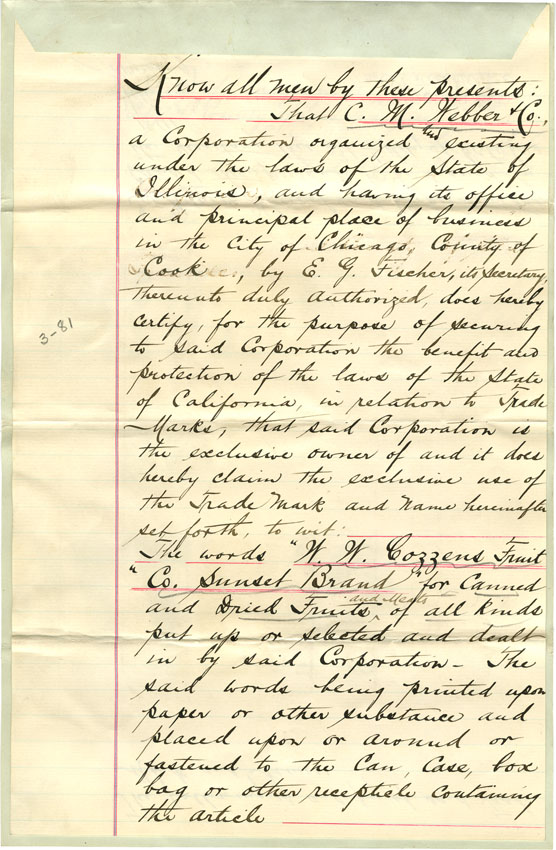 Know all men by these presents:
That C. M. Webber & Co.,
a Corporation organized and existing
under the laws of the State of
Illinois, and having its office
and principal place of business
in the City of Chicago, County of
Cook, by E. G. Fischer, its Secretary,
thereunto duly authorized, does hereby
certify, for the purpose of securing
3-81
to said Corporation the benefit and
protection of the laws of the State
of California, in relation to Trade
Marks, that said Corporation is
the exclusive owner of and it does
hereby claim the exclusive use of
the Trade Mark and Name hereinafter
set forth, to wit:
The words "W. W. Cozzens Fruit
"Co. Sunset Brand" for Canned
and Meats
and Dried Fruits, of all kinds
put up or selected and dealt
in by said Corporation - The
said words being printed upon
paper or other substance and
placed upon or around or
fastened to the Can, Case, box
bag or other recepticle containing
the article